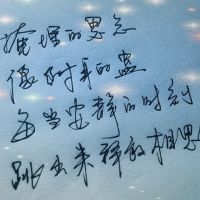 掩埋的思念
像附耳的蛊
每当安静的时刻
跳出来释放相思